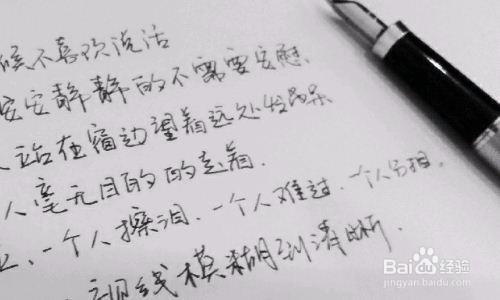 候不喜欢说话
安安静静的不需要安慰.
人站在窗边望着远处发呆
人毫无目的的走着.
一个人擦泪.一个人难过.一个人
视线模糊到清晰.
Baidu经验
jingyan.baidu.com